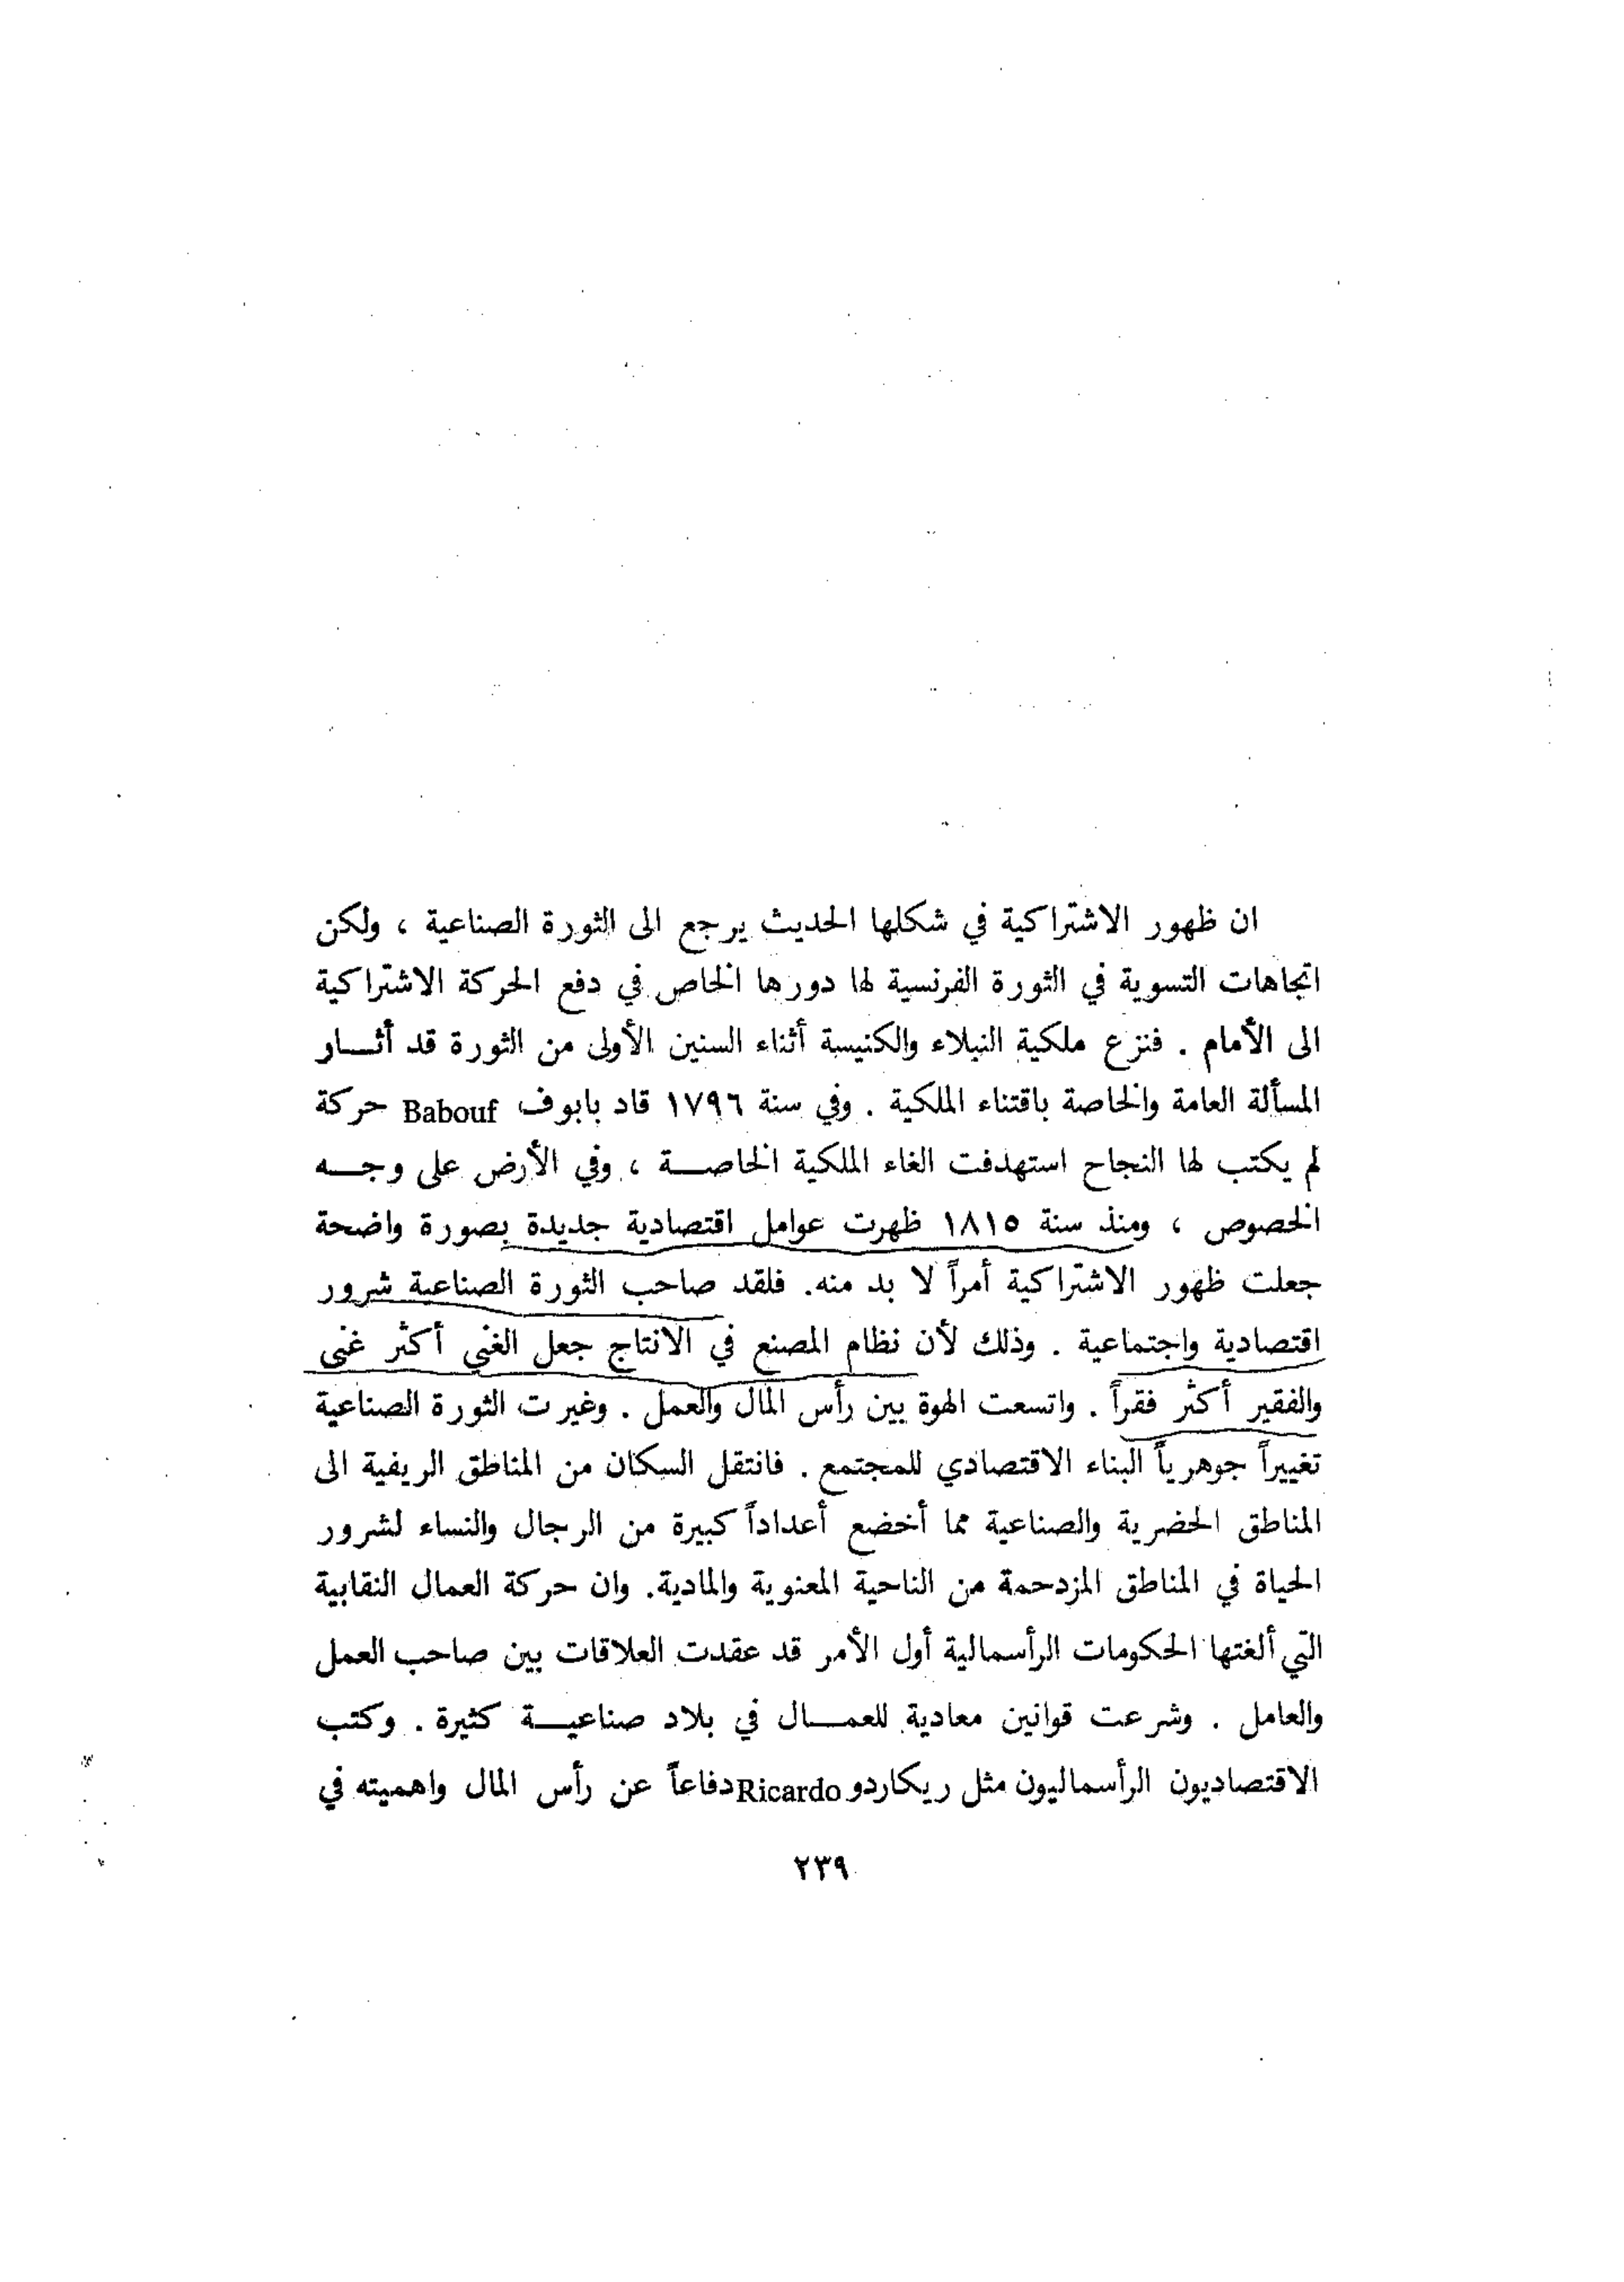 ان ظهور الاشتراكية في شكلها الحديث يرجع الى الثورة الصناعية ، ولكن
اتجاهات التسوية في الثورة الفرنسية لها دورها الخاص في دفع الحركة الاشتراكية
الى الأمام . فنزع ملكية النبلاء والكنيسة أثناء السنين الأولى من الثورة قد أثـــار
المسألة العامة والخاصة باقتناء الملكية . وفي سنة ١٧٩٦ قاد بابوف Babouf حركة
لم يكتب لها النجاح استهدفت الغاء الملكية الخاصـــة ، وفي الأرض على وجـــه
الخصوص ، ومنذ سنة ١٨١٥ ظهرت عوامل اقتصادية جديدة بصورة واضحة
جعلت ظهور الاشتراكية أمراً لا بد منه. فلقد صاحب الثورة الصناعية شرور
اقتصادية واجتماعية . وذلك لأن نظام المصنع في الانتاج جعل الغني أكثر غنى
والفقير أكثر فقراً . واتسعت الهوة بين رأس المال والعمل . وغيرت الثورة الصناعية
تغييراً جوهرياً البناء الاقتصادي للمجتمع . فانتقل السكان من المناطق الريفية الى
المناطق الحضرية والصناعية مما أخضع أعداداً كبيرة من الرجال والنساء لشرور
الحياة في المناطق المزدحمة من الناحية المعنوية والمادية. وان حركة العمال النقابية
التي ألغتها الحكومات الرأسمالية أول الأمر قد عقدت العلاقات بين صاحب العمل
والعامل . وشرعت قوانين معادية للعمـــال في بلاد صناعيـــة كثيرة . وكتب
الاقتصاديون الرأسماليون مثل ريكاردو Ricardo دفاعاً عن رأس المال واهميته في
٢٣٩